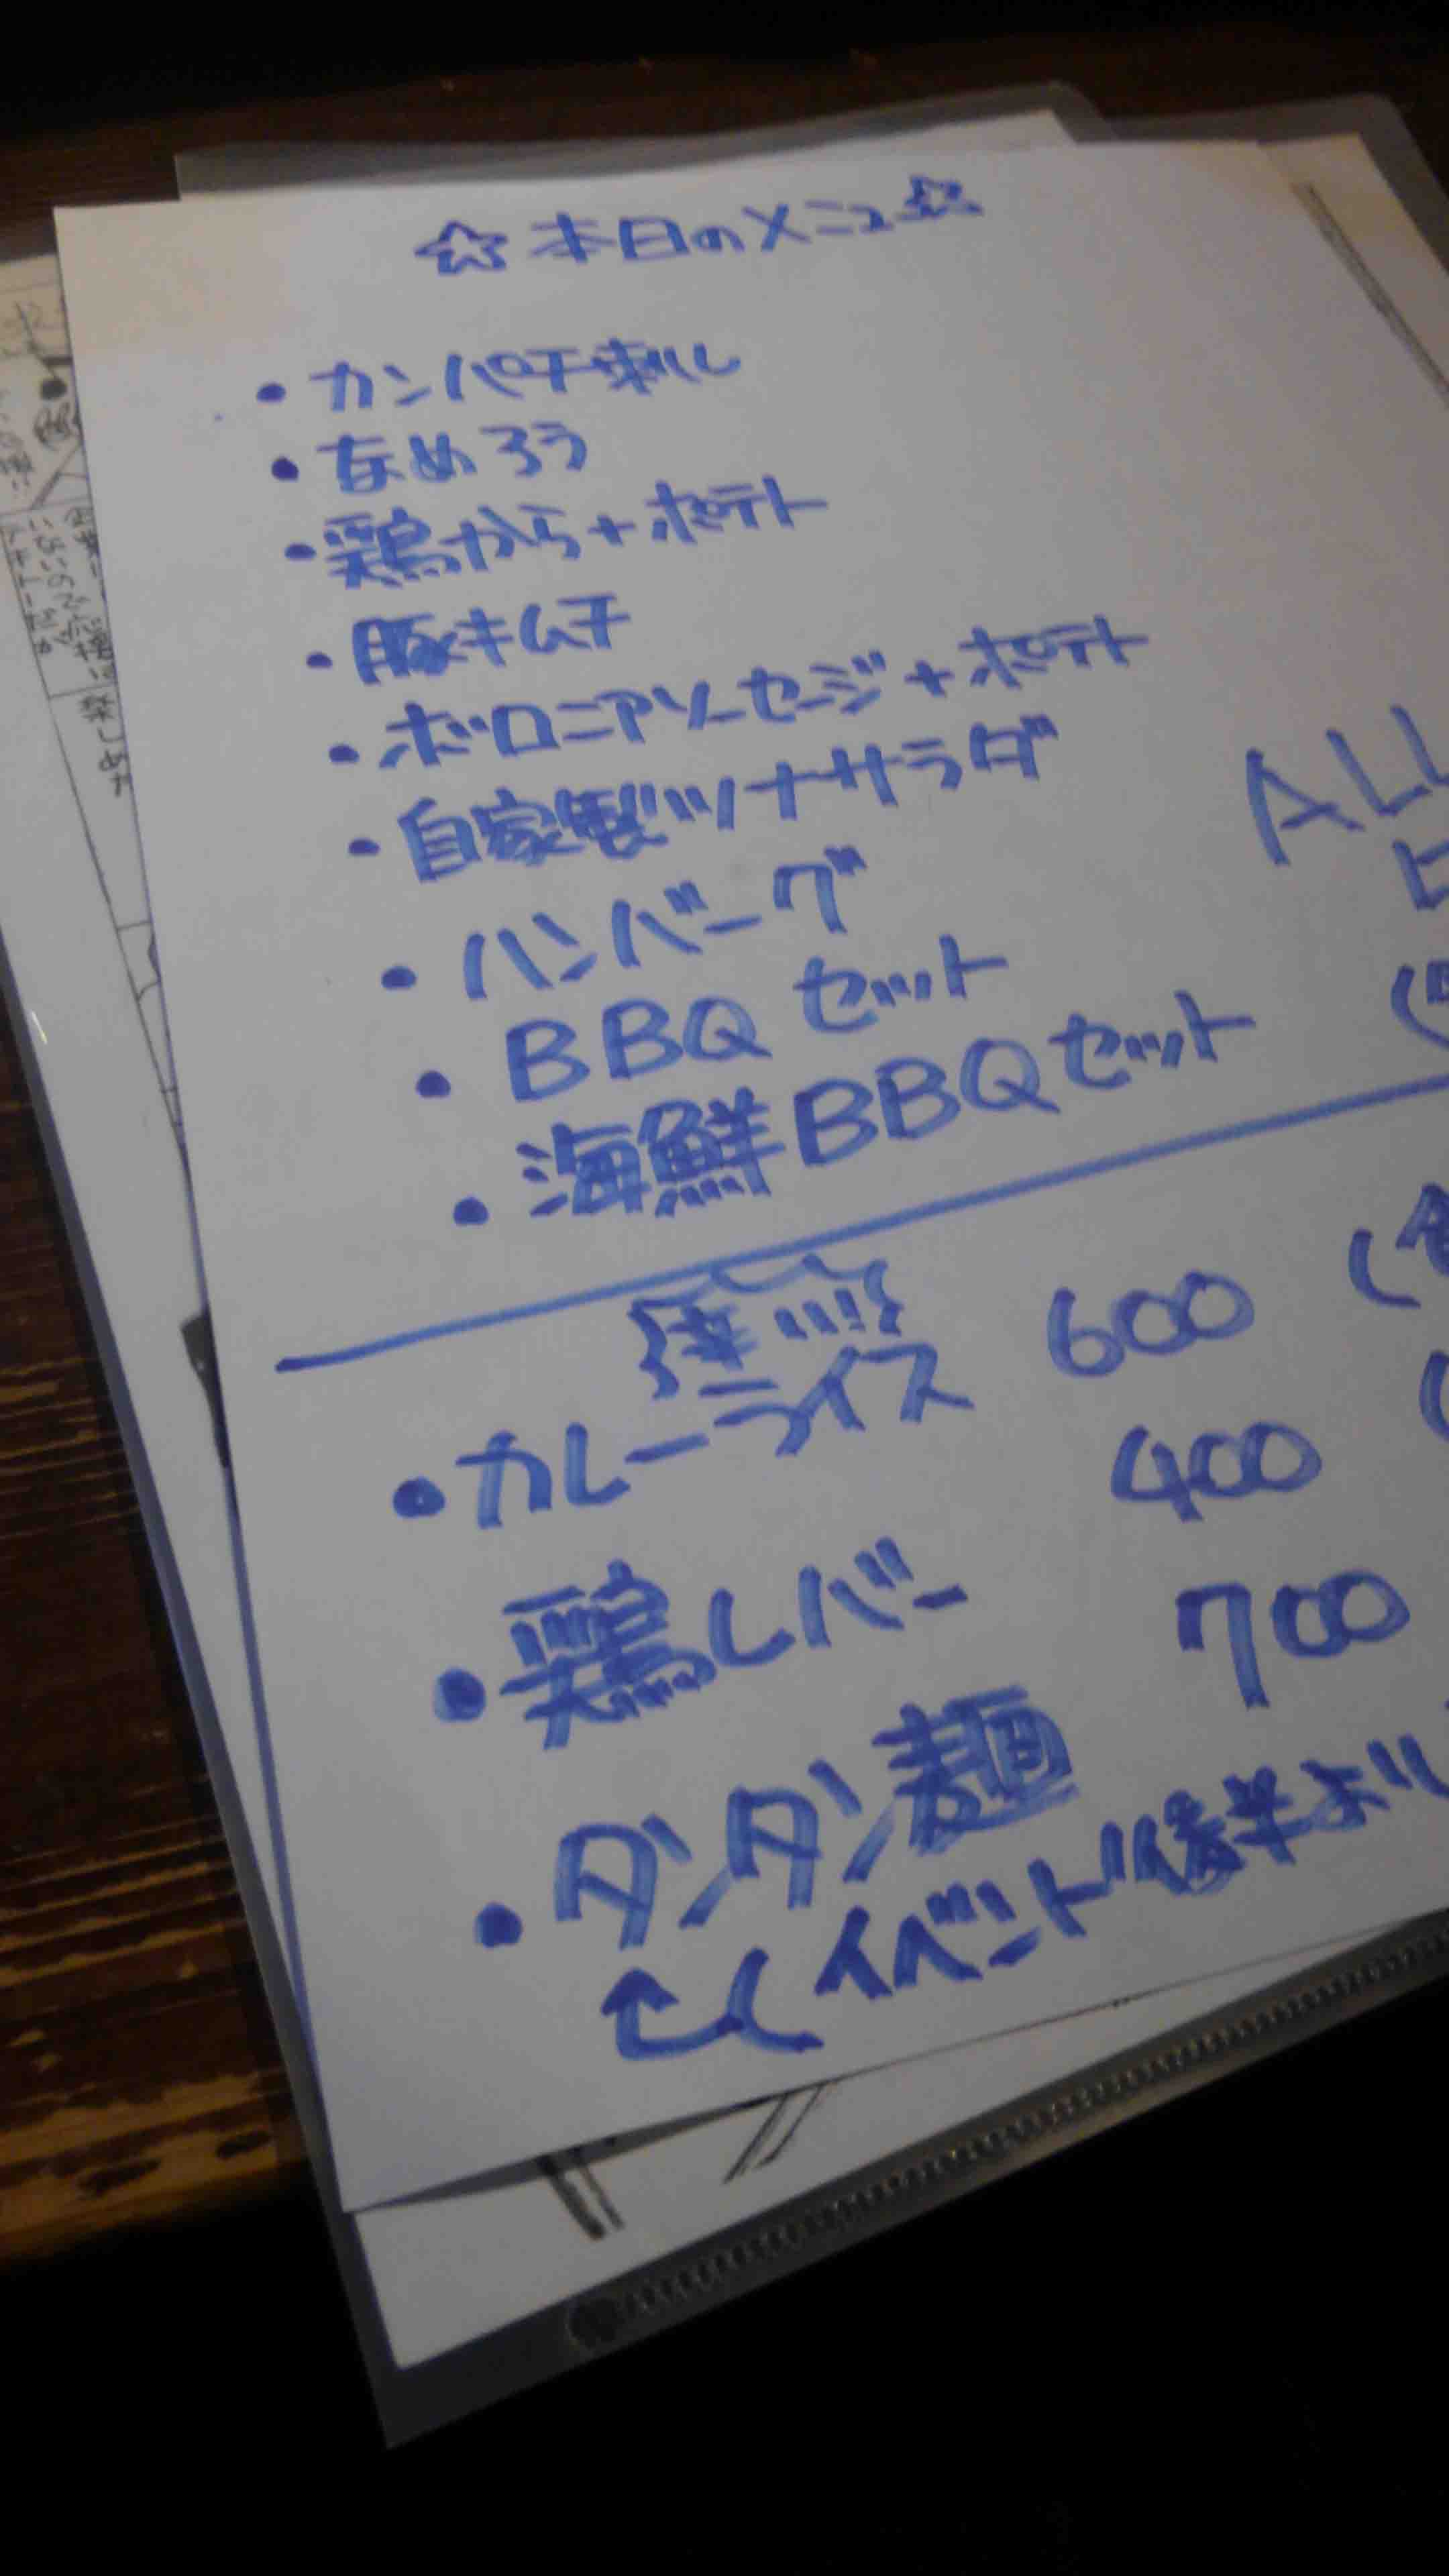 ☆本日のメニュ☆
・カンパチ刺し
・なめろう
・鶏から+ポテト
・豚キムチ
・ボロニアソーセージ+ポテト
・自家製ツナサラダ
・ハンバーグ
・BBQセット
・海鮮BBQセット
ALL
辛い!!
・カレーライス 600
・鶏レバー 400
・タンタン麺 700
(イベント後半より